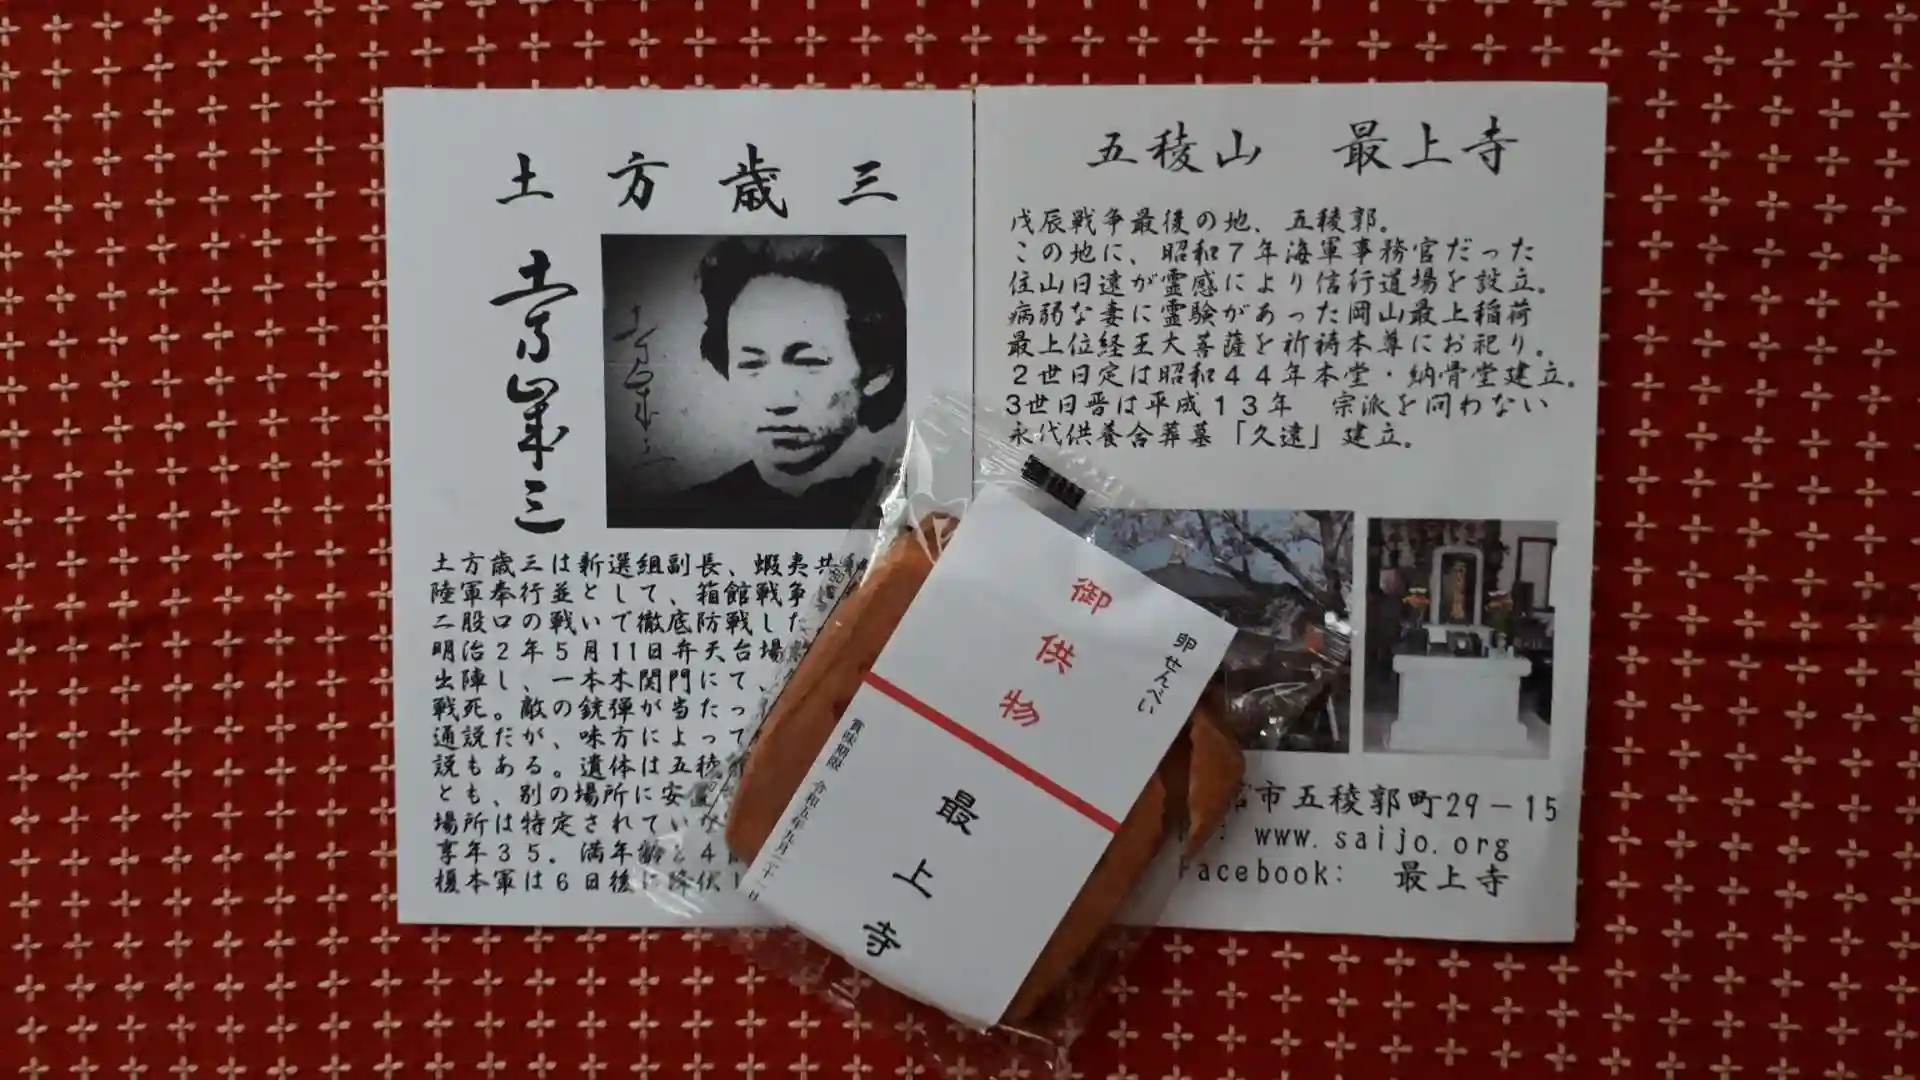 土方歳三
土方歳三
土方歳三は新選組副長、蝦夷共
陸軍奉行並として、箱館戦争
二股口の戦いで徹底防戦した
明治2年5月11日弁天台場
出陣し、一本木関門にて、
戦死。敵の銃弾が当たっ
通説だが、味方によって
説もある。遺体は五稜
とも、別の場所に安
場所は特定されてい
享年35。満年齢
榎本軍は6日後に降伏
五稜山 最上寺
戊辰戦争最後の地、五稜郭。
この地に、昭和7年海軍事務官だった
住山日遠が霊感により信行道場を設立。
病弱な妻に霊験があった岡山最上稲荷
最上位経王大菩薩を祈祷本尊にお祀り。
2世日定は昭和44年本堂・納骨堂建立。
3世日晋は平成13年 宗派を問わない
永代供養合葬墓「久遠」建立。
市五稜郭町29-15
www.saijo.org
Facebook: 最上寺
卵せんべい
御供物
最上寺
賞味期限 令和五年五月二十一日